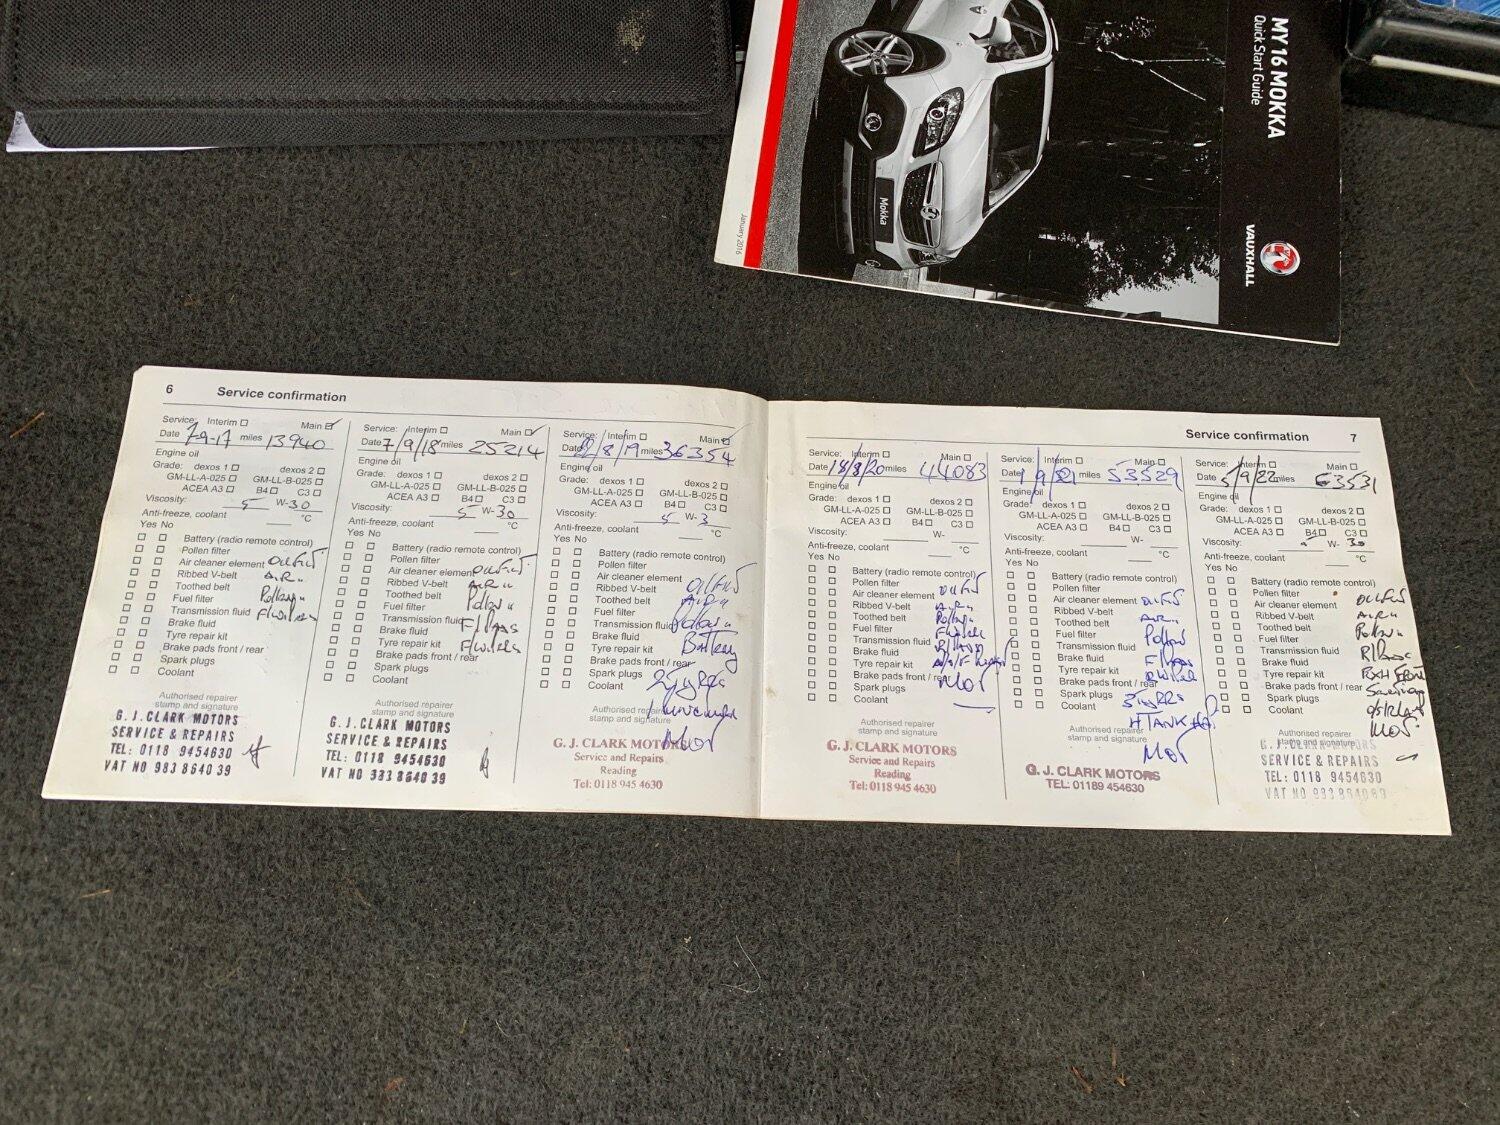 MY 16 MOKKA
Quick Start Guide
VAUXHALL
Mokka
January 2016
6 Service confirmation
Service: Interim Main
Date 7-9-17 miles 13940
Engine oil
Grade: dexos 1 dexos 2
GM-LL-A-025 GM-LL-B-025
ACEA A3 B4 C3
Viscosity: 5 W-30
Anti-freeze, coolant °C
Yes No
Battery (radio remote control)
Pollen filter
Air cleaner element
Ribbed V-belt
Toothed belt
Fuel filter
Transmission fluid
Brake fluid
Tyre repair kit
Brake pads front / rear
Spark plugs
Coolant
Authorised repairer
stamp and signature
G. J. CLARK MOTORS
SERVICE & REPAIRS
TEL: 0118 9454630
VAT NO 983 8640 39
Service: Interim Main
Date 7/9/18 miles 25214
Engine oil
Grade: dexos 1 dexos 2
GM-LL-A-025 GM-LL-B-025
ACEA A3 B4 C3
Viscosity: 5 W-30
Anti-freeze, coolant °C
Yes No
Battery (radio remote control)
Pollen filter
Air cleaner element
Ribbed V-belt
Toothed belt
Fuel filter
Transmission fluid
Brake fluid
Tyre repair kit
Brake pads front / rear
Spark plugs
Coolant
Authorised repairer
stamp and signature
G. J. CLARK MOTORS
SERVICE & REPAIRS
TEL: 0118 9454630
Service: Interim Main
Date /8/19 miles 36354
Engine oil
Grade: dexos 1 dexos 2
GM-LL-A-025 GM-LL-B-025
ACEA A3 B4 C3
Viscosity: 5 W-3
Anti-freeze, coolant °C
Yes No
Battery (radio remote control)
Pollen filter
Air cleaner element
Ribbed V-belt
Toothed belt
Fuel filter
Transmission fluid
Brake fluid
Tyre repair kit
Brake pads front / rear
Spark plugs
Coolant
Battery
MOT
Authorised repairer
stamp and signature
G. J. CLARK MOTORS
Service and Repairs
Reading
Tel: 0118 945 4630
Service confirmation 7
Service: Interim Main
Date 18/8/20 miles 44083
Engine oil
Grade: dexos 1 dexos 2
GM-LL-A-025 GM-LL-B-025
ACEA A3 B4 C3
Viscosity: W-
Anti-freeze, coolant °C
Yes No
Battery (radio remote control)
Pollen filter
Air cleaner element
Ribbed V-belt
Toothed belt
Fuel filter
Transmission fluid
Brake fluid
Tyre repair kit
Brake pads front / rear
Spark plugs
Coolant
MOT
Authorised repairer
stamp and signature
G. J. CLARK MOTORS
Service and Repairs
Reading
Tel: 0118 945 4630
Service: Interim Main
Date 1/9/21 miles 53529
Engine oil
Grade: dexos 1 dexos 2
GM-LL-A-025 GM-LL-B-025
ACEA A3 B4 C3
Viscosity: W-
Anti-freeze, coolant °C
Yes No
Battery (radio remote control)
Pollen filter
Air cleaner element
Ribbed V-belt
Toothed belt
Fuel filter
Transmission fluid
Brake fluid
Tyre repair kit
Brake pads front / rear
Spark plugs
Coolant
MOT
Authorised repairer
stamp and signature
G. J. CLARK MOTORS
TEL: 01189 454630
Service: Interim Main
Date 5/9/22 miles 63531
Engine oil
Grade: dexos 1 dexos 2
GM-LL-A-025 GM-LL-B-025
ACEA A3 B4 C3
Viscosity: W- 30
Anti-freeze, coolant °C
Yes No
Battery (radio remote control)
Pollen filter
Air cleaner element
Ribbed V-belt
Toothed belt
Fuel filter
Transmission fluid
Brake fluid
Tyre repair kit
Brake pads front / rear
Spark plugs
Coolant
MOT
Authorised repairer
stamp and signature
G. J. CLARK MOTORS
SERVICE & REPAIRS
TEL: 0118 9454630